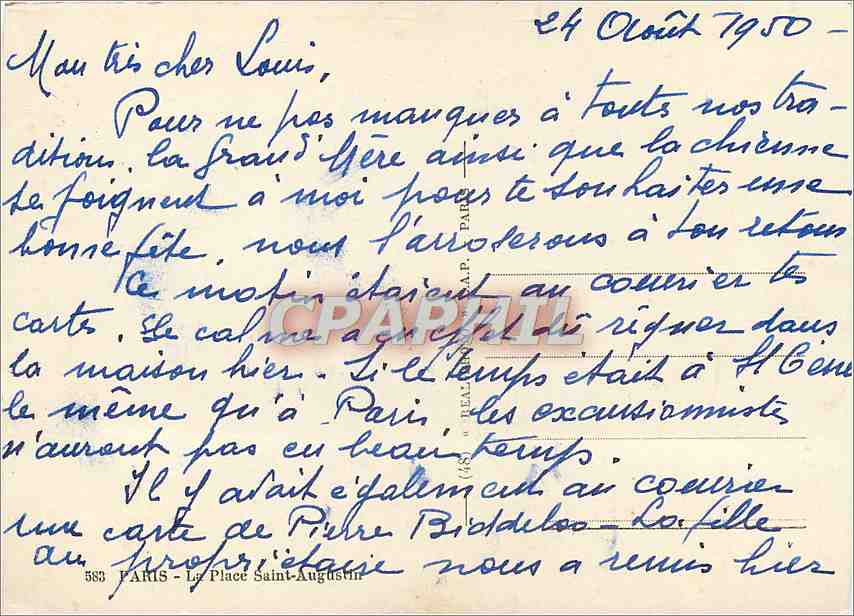 24 Août 1950 -
Mon très cher Louis,
Pour ne pas manquer à toutes nos tra-
ditions, la Grand'Mère ainsi que la chienne
se joignent à moi pour te souhaiter une
bonne fête, nous l'arroserons à ton retour
Ce matin étaient au courrier tes
cartes. Le calme a en effet dû régner dans
la maison hier. Si le temps était à St Géné
le même qu'à Paris les excursionnistes
n'auront pas eu beau temps.
Il y avait également au courrier
une carte de Pierre Biddeloo - La fille
du propriétaire nous a remis hier
583 PARIS - La Place Saint-Augustin
(48) REAL A.P. PARIS
CPARAMA